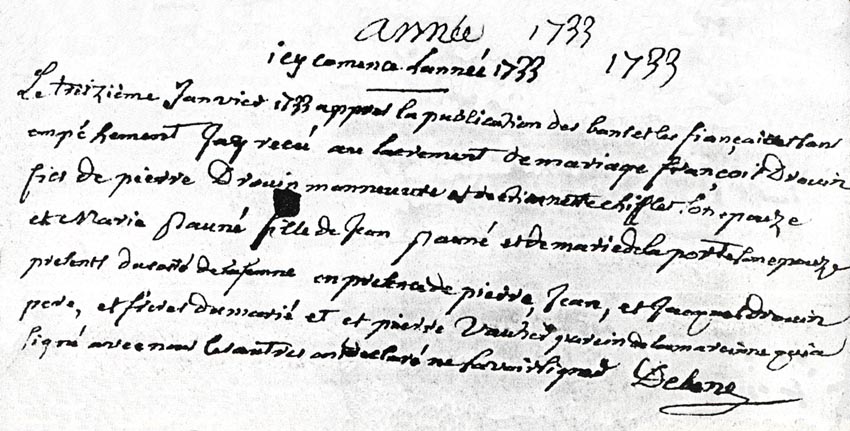 année 1733
icy comence lannée 1733 1733
Le treizième Janvier 1733 appres la publication des bans et les fiançailles sans
empéchement Jay recu au sacrement de mariage françois Drouin
fils de pierre Drouin manneuvre et de chifflet son epouze
et Marie fille de Jean et de marie de la porte son epouze
presents du costé de la femme en presence de pierre, Jean, et Jacques Drouin
pere, et freres du marié et et pierre Vautier parein de la marienne qui a
signé avec nous les autres ont declaré ne savoir signer